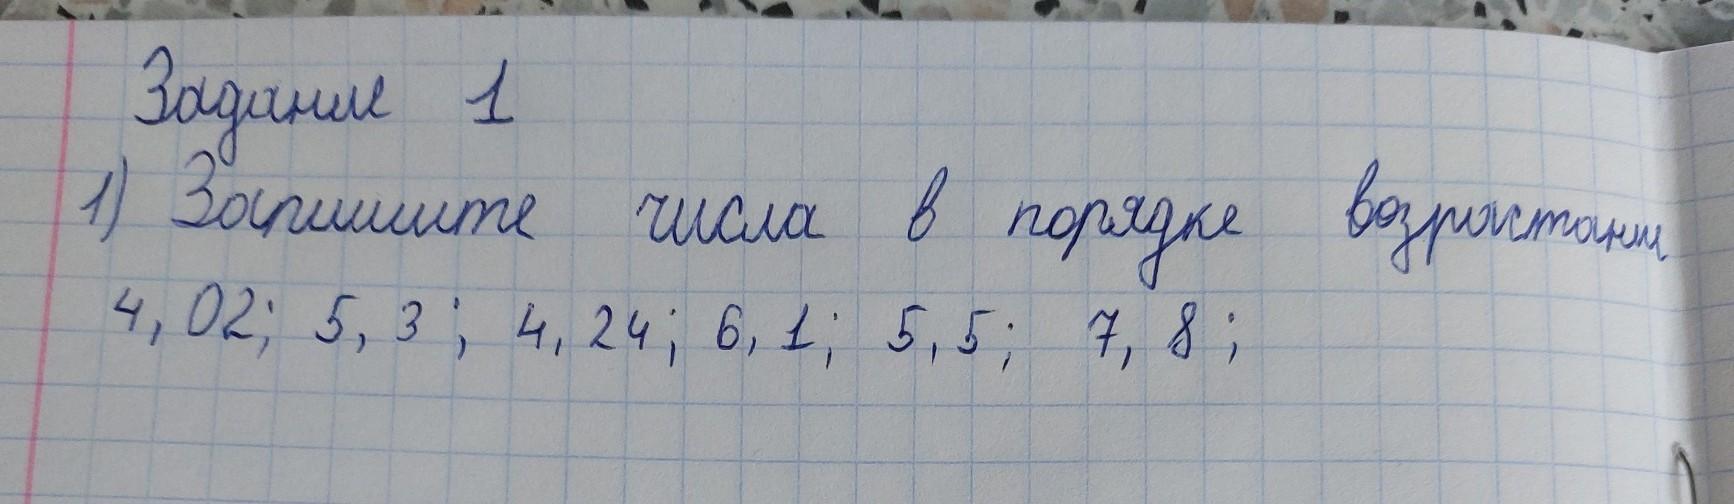 Задание 1
1) Запишите числа в порядке возрастании
4,02; 5,3; 4,24; 6,1; 5,5; 7,8;